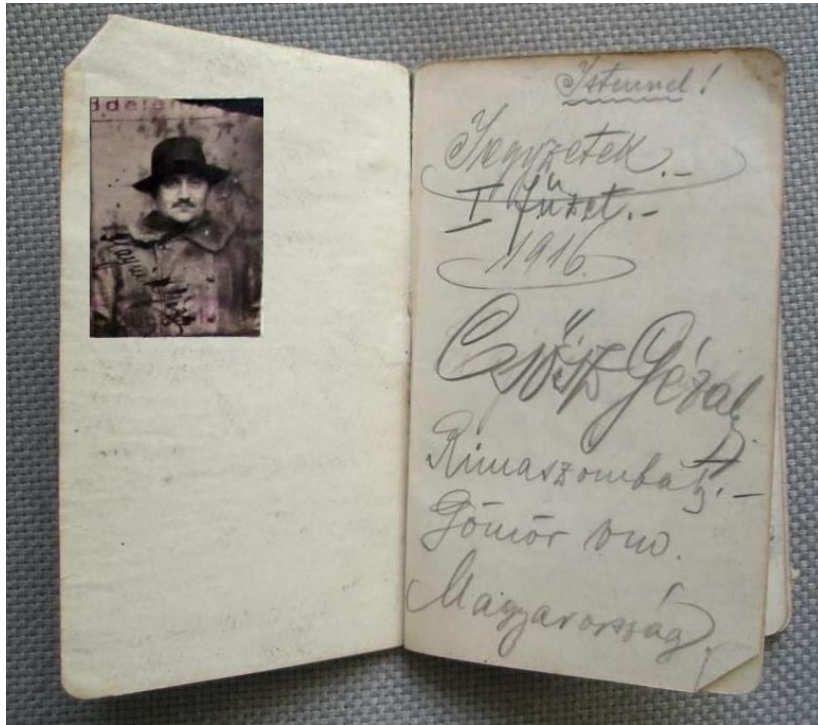 Istennel!
Jegyzetek.-
I füzet.-
1916.
Géza
Rimaszombat.-
Gömör vm.
Magyarország.